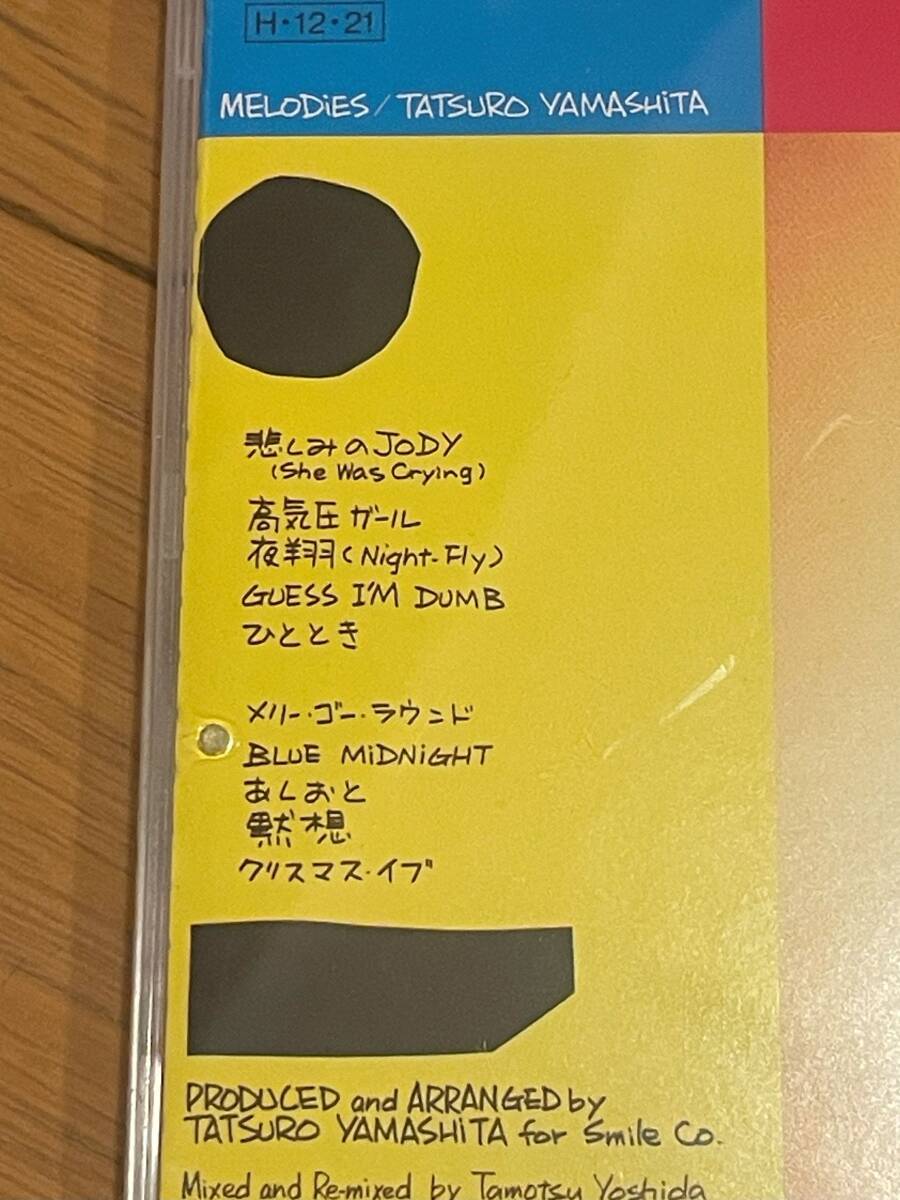 H・12・21
MELODiES / TATSURO YAMASHiTA
悲しみのJODY
(She Was Crying)
高気圧ガール
夜翔(Night-Fly)
GUESS I'M DUMB
ひととき
メリー・ゴー・ラウンド
BLUE MiDNiGHT
あしおと
黙想
クリスマス・イブ
PRODUCED and ARRANGED by
TATSURO YAMASHiTA for Smile Co.
Mixed and Re-mixed by Tamotsu Yoshida